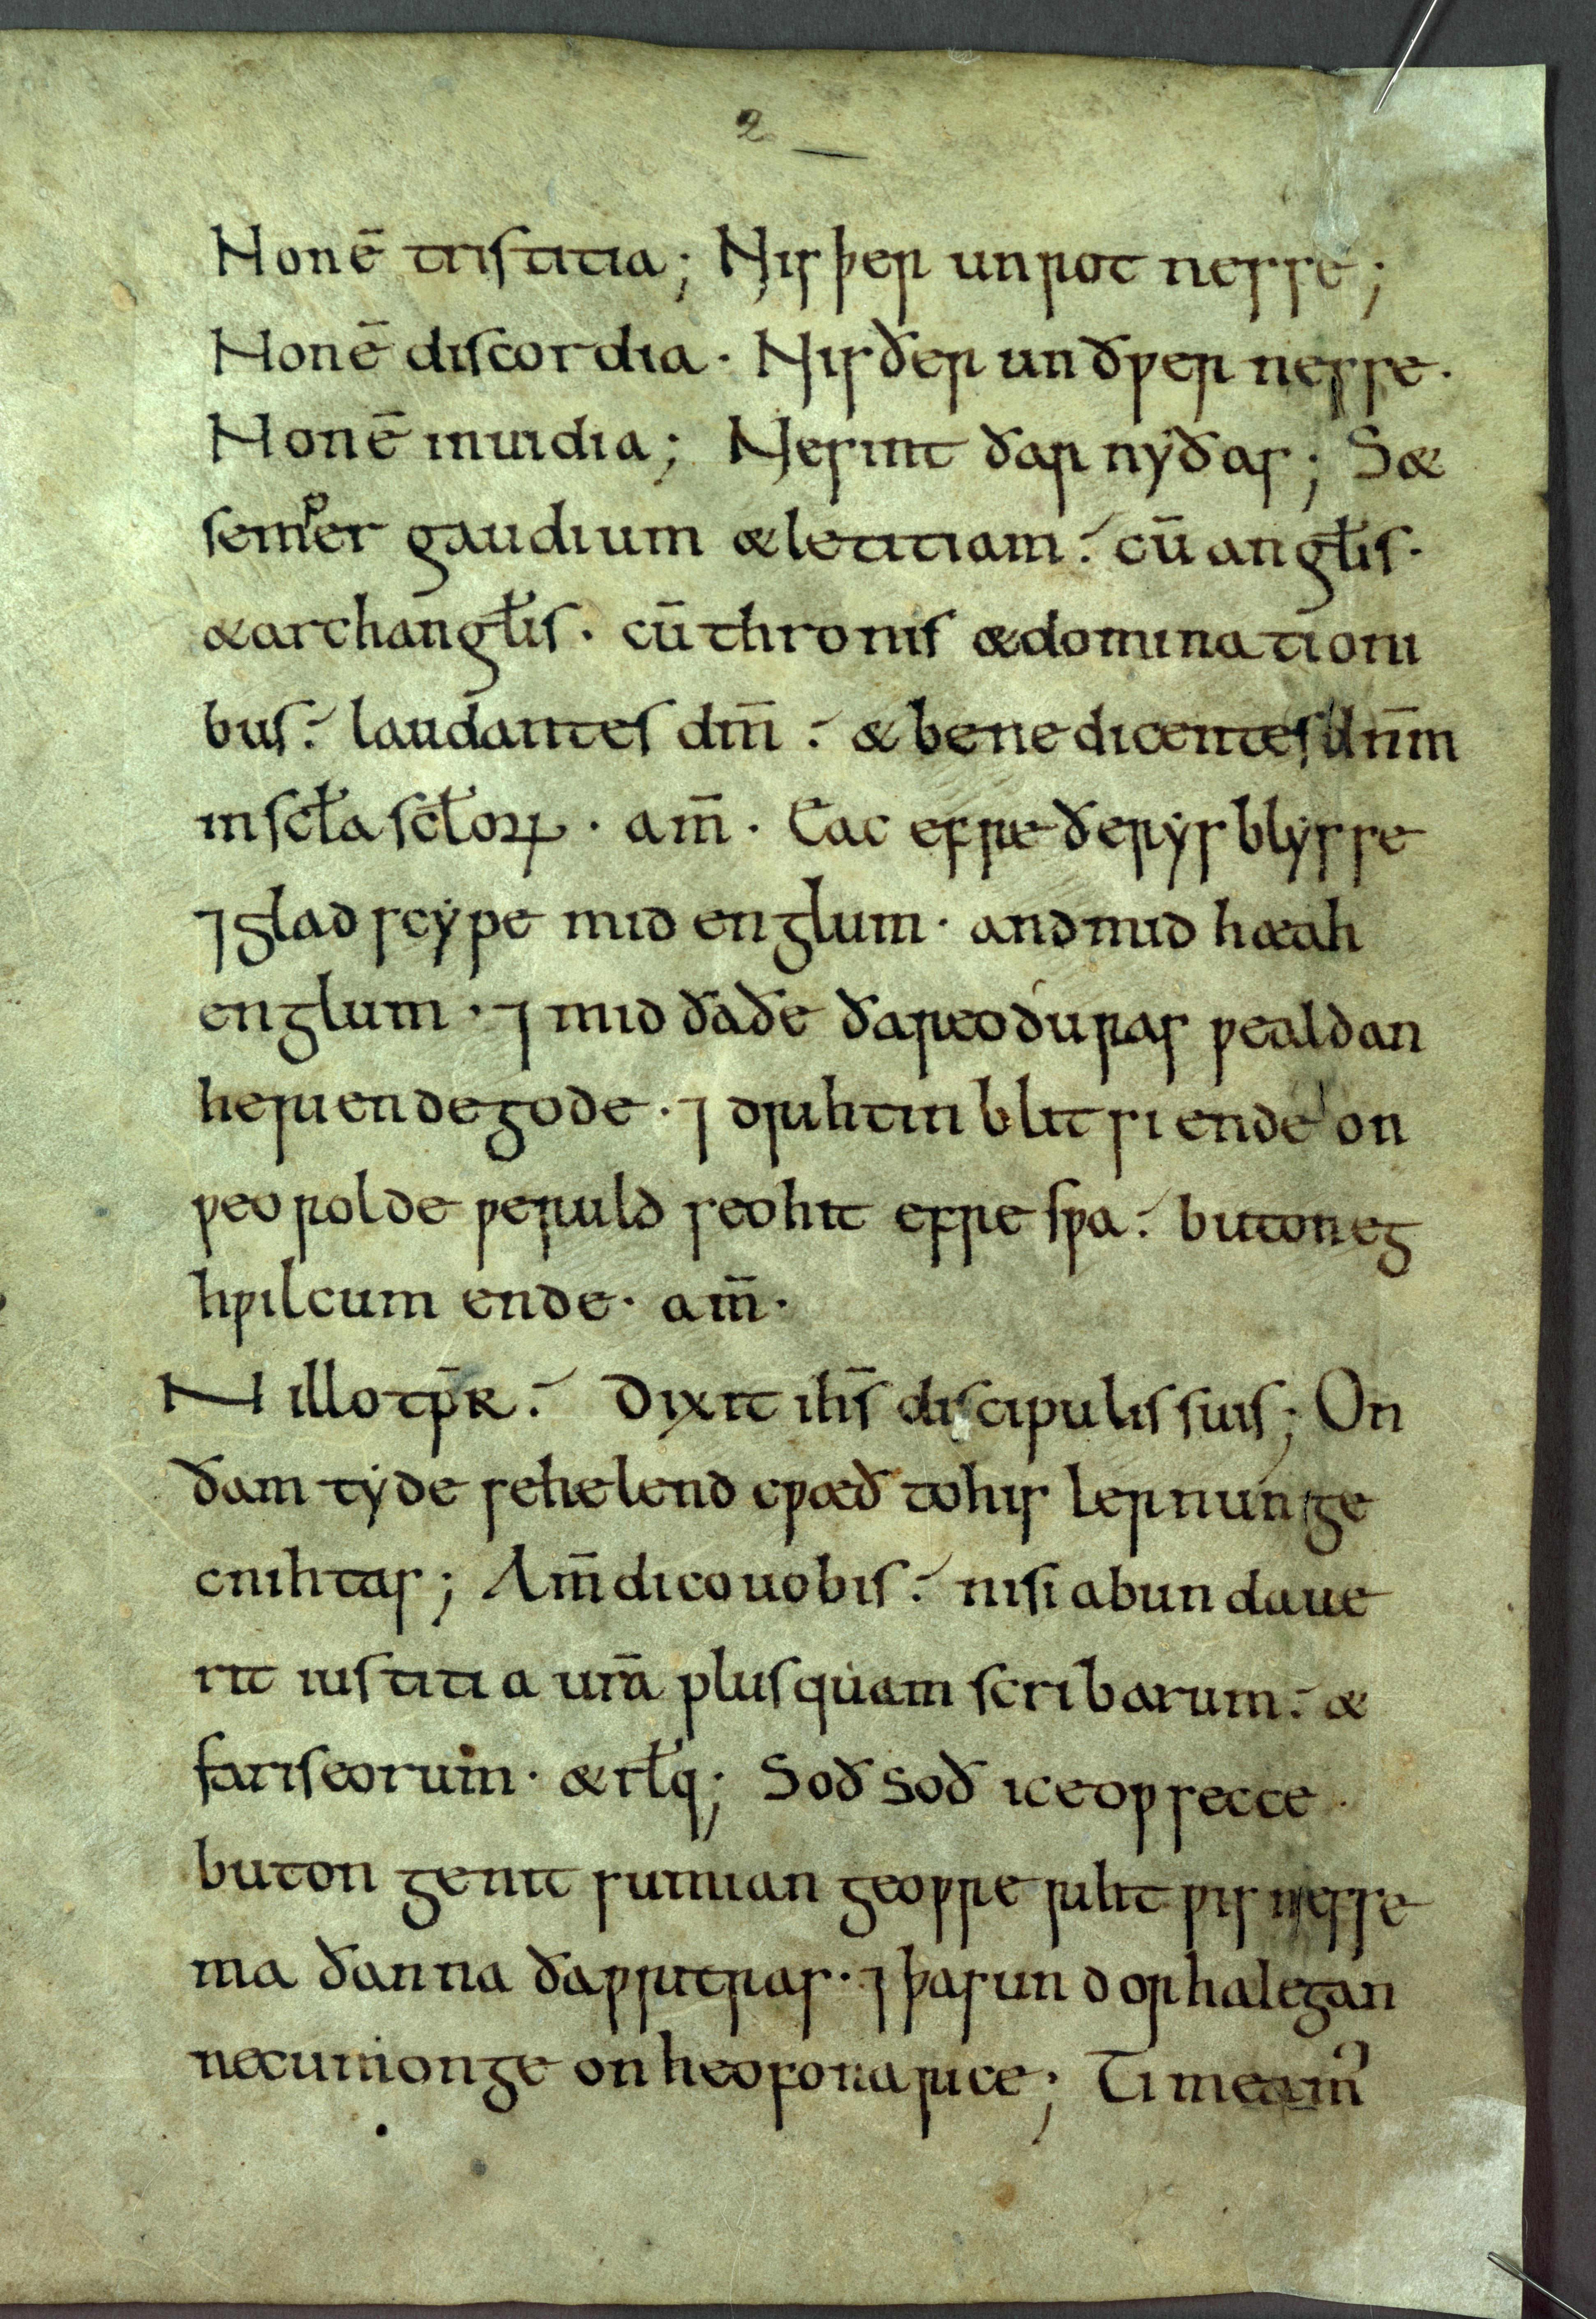 2
Non ē tristitia; Nis þer unrot nesse;
Non ē discordia. Nis ðer un ðƿer nesse.
Non ē inuidia; Ne sint ðar nyðas; S&
semper gaudium & letitiam. cū angłis.
& archangłis. cū thronis & dominationi
bus. laudantes dm̄. & benedicentes dn̄m
in scła scłoꝝ. am̄. Eac efre ðer ys blysse
⁊ gladscype mid englum. and mid hæah
englum. ⁊ mid ðaðe ðareoduras ƿealdan
heriende gode. ⁊ drihtin blitsiende on
ƿeorolde ƿeruld seo hit efre sƿa. buton eg
hƿilcum ende. am̄.
N illo tp̄R. Dixit ihs̄ discipulis suis; On
ðam tyde se helend cƿæð to his lernunge
cnihtas; Am̄ dico uobis. nisi abundaue
rit iustitia ur̄a plus quam scribarum. &
fariseorum. & rłq; Soð soð ic eoƿ secce.
buton genit sumian geoƿre rihtƿisnesse
ma ðanna ða ƿritras. ⁊ þa sundorhalegan
ne cumon ge on heofona rice; Timeam᾽